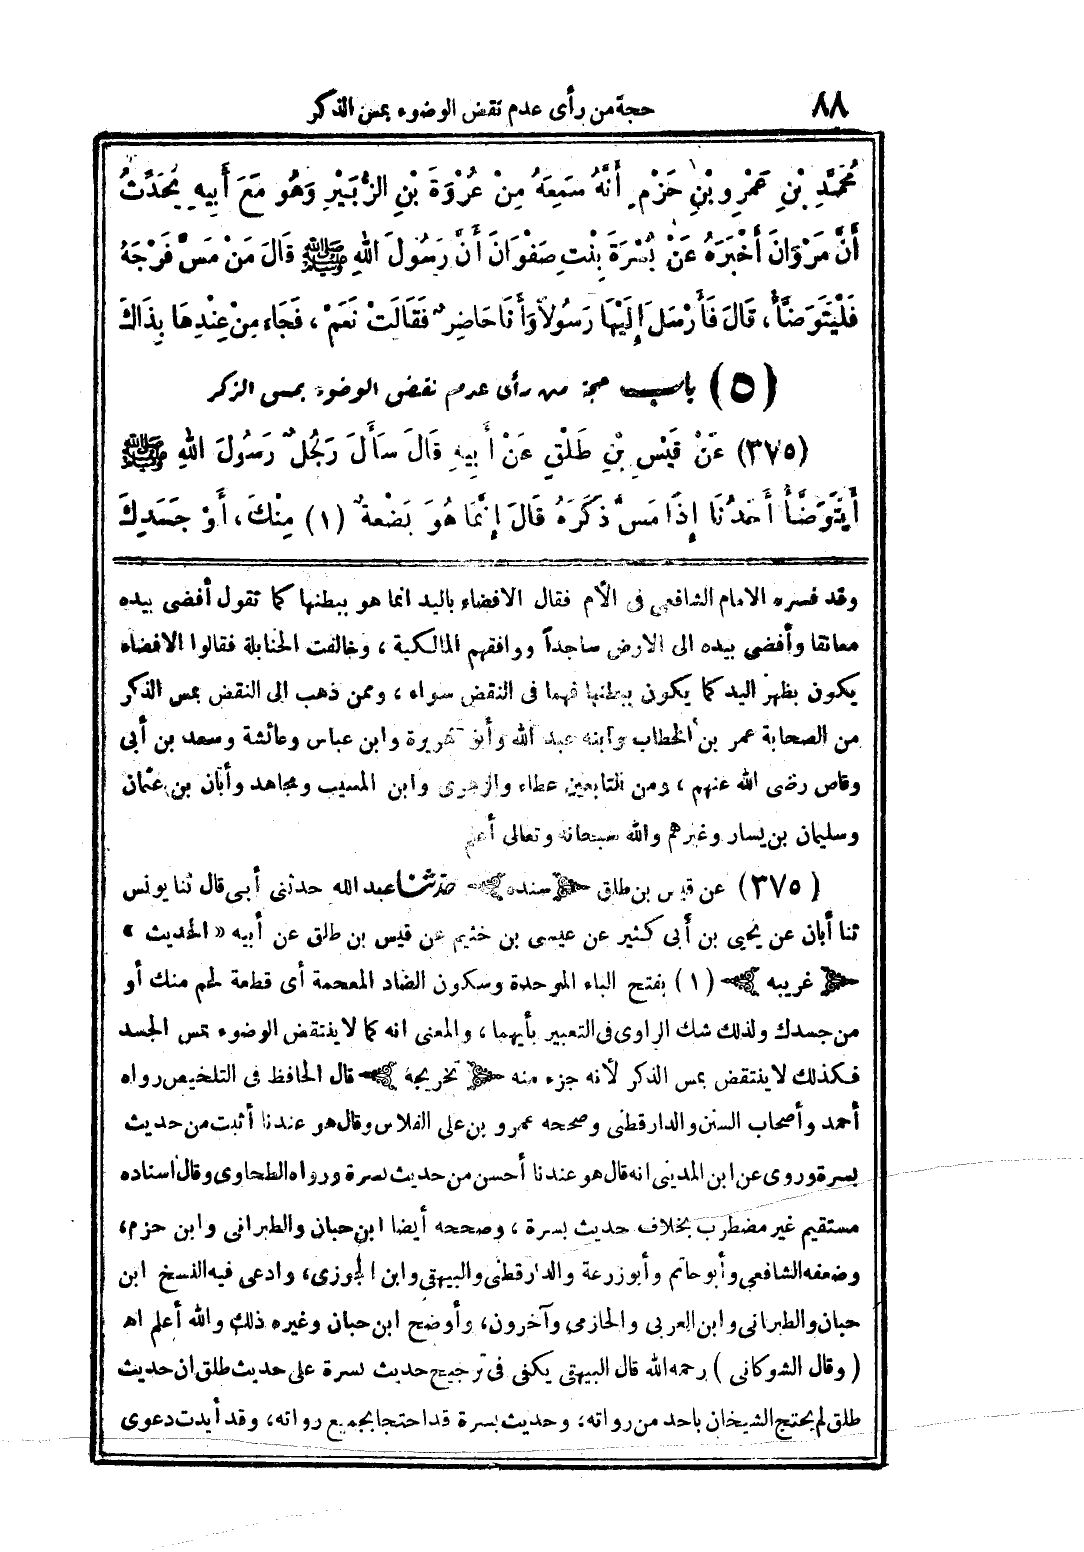 ٨٨ حجة من رأى عدم نقض الوضوء بمس الذكر
مُحَمَّدِ بْنِ عَمْرِو بْنِ حَزْمٍ أَنَّهُ سَمِعَهُ مِنْ عُرْوَةَ بْنِ الزُّبَيْرِ وَهُوَ مَعَ أَبِيهِ يُحَدِّثُ
أَنَّ مَرْوَانَ أَخْبَرَهُ عَنْ بُسْرَةَ بِنْتِ صَفْوَانَ أَنَّ رَسُولَ اللهِ ﷺ قَالَ مَنْ مَسَّ فَرْجَهُ
فَلْيَتَوَضَّأْ، قَالَ فَأَرْسَلَ إِلَيْهَا رَسُولاً وَأَنَا حَاضِرٌ فَقَالَتْ نَعَمْ، فَجَاءَ مِنْ عِنْدِهَا بِذَاكَ
(٥) باب حجة من رأى عدم نقض الوضوء بمس الذكر
(٣٧٥) عَنْ قَيْسِ بْنِ طَلْقٍ عَنْ أَبِيهِ قَالَ سَأَلَ رَجُلٌ رَسُولَ اللهِ ﷺ
أَيَتَوَضَّأُ أَحَدُنَا إِذَا مَسَّ ذَكَرَهُ قَالَ إِنَّمَا هُوَ بَضْعَةٌ (١) مِنْكَ، أَوْ جَسَدِكَ
وقد فسره الامام الشافعي فى الأم فقال الافضاء باليد انما هو ببطنها كما تقول أفضى بيده
معانقا وأفضى بيده الى الارض ساجداً ووافقهم المالكية، وخالفت الحنابلة فقالوا الافضاء
يكون بظهر اليد كما يكون ببطنها فهما فى النقض سواء، وممن ذهب الى النقض بمس الذكر
من الصحابة عمر بن الخطاب وابنه عبد الله وأبو هريرة وابن عباس وعائشة وسعد بن أبى
وقاص رضى الله عنهم، ومن التابعين عطاء والزهرى وابن المسيب ومجاهد وأبان بن عثمان
وسليمان بن يسار وغيرهم والله سبحانه وتعالى أعلم
(٣٧٥) عن قيس بن طلق ﴿سنده﴾ حدّثنا عبد الله حدثنى أبى قال ثنا يونس
ثنا أبان عن يحيى بن أبى كثير عن عيسى بن خثيم عن قيس بن طلق عن أبيه «الحديث»
﴿غريبه﴾ (١) بفتح الباء الموحدة وسكون الضاد المعجمة أى قطعة لحم منك أو
من جسدك ولذلك شك الراوى فى التعبير بأيهما، والمعنى انه كما لا ينتقض الوضوء بمس الجسد
فكذلك لا ينتقض بمس الذكر لأنه جزء منه ﴿تخريجه﴾ قال الحافظ فى التلخيص رواه
أحمد وأصحاب السنن والدارقطنى وصححه عمرو بن على الفلاس وقال هو عندنا أثبت من حديث
بسرة وروى عن ابن المدينى انه قال هو عندنا أحسن من حديث بسرة ورواه الطحاوى وقال اسناده
مستقيم غير مضطرب بخلاف حديث بسرة، وصححه أيضا ابن حبان والطبرانى وابن حزم،
وضعفه الشافعي وأبو حاتم وأبو زرعة والدارقطنى والبيهقى وابن الجوزى، وادعى فيه النسخ ابن
حبان والطبرانى وابن العربى والحازمى وآخرون، وأوضح ابن حبان وغيره ذلك والله أعلم اهـ
(وقال الشوكانى) رحمه الله قال البيهقى يكفى فى ترجيح حديث بسرة على حديث طلق ان حديث
طلق لم يحتج الشيخان باحد من رواته، وحديث بسرة قد احتجا بجميع رواته، وقد أيدت دعوى